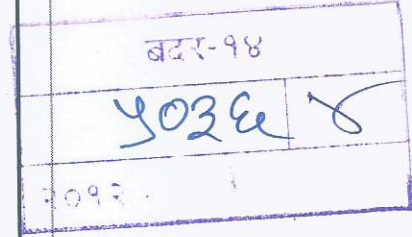 बदर-१४
५०३६ ४
२०१२